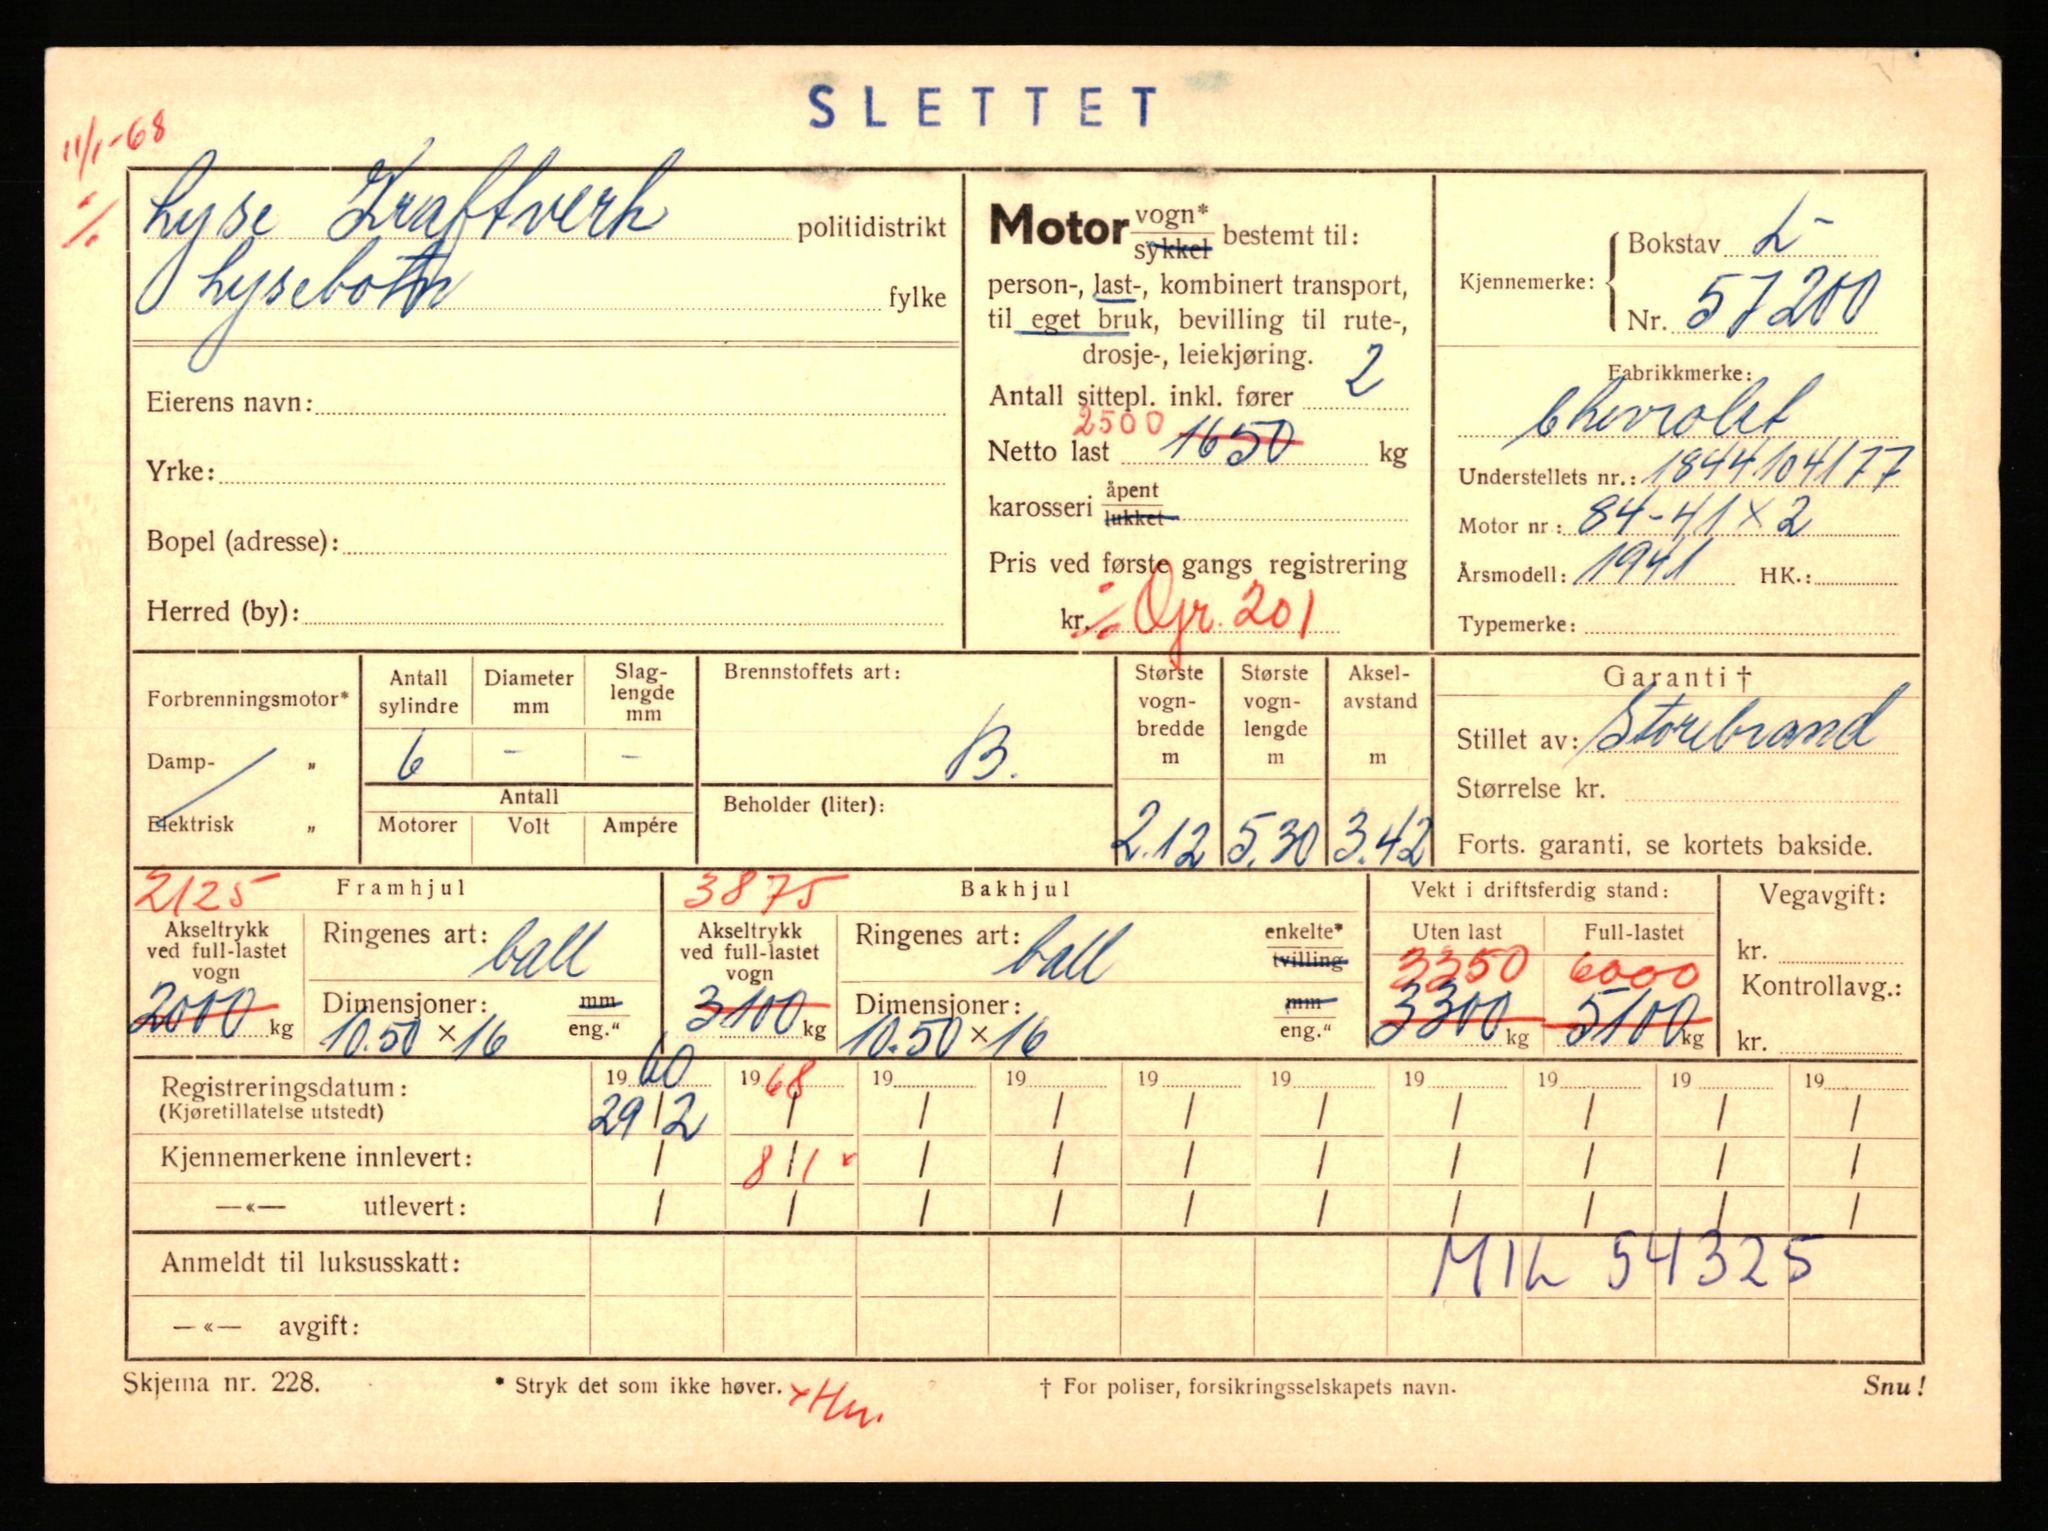 SLETTET
11/1-68
Lyse Kraftverk politidistrikt
Lysebotn fylke
Eierens navn:
Yrke:
Bopel (adresse):
Herred (by):
Motor vogn*
sykkel bestemt til:
person-, last-, kombinert transport,
til eget bruk, bevilling til rute-,
drosje-, leiekjøring.
Antall sittepl. inkl. fører 2
2500
Netto last 1650 kg
karosseri åpent
lukket
Pris ved første gangs registrering
kr. % Ogr. 201
Kjennemerke: Bokstav L-
Nr. 57200
Fabrikkmerke:
Chevrolet
Understellets nr.: 1844104177
Motor nr: 84-41 x 2
Årsmodell: 1941 HK.:
Typemerke:
Forbrenningsmotor*
Damp- „
Elektrisk „
Antall sylindre
Diameter mm
Slag-lengde mm
6 - -
Antall
Motorer Volt Ampére
Brennstoffets art:
B.
Beholder (liter):
Største vogn-bredde m
2.12
Største vogn-lengde m
5.30
Aksel-avstand m
3.42
Garanti †
Stillet av: Storebrand
Størrelse kr.
Forts. garanti, se kortets bakside.
2125 Framhjul
Akseltrykk ved full-lastet vogn
2000 kg
Ringenes art: ball
Dimensjoner: mm
10.50 × 16 eng."
3875 Bakhjul
Akseltrykk ved full-lastet vogn
3100 kg
Ringenes art: ball enkelte*
tvilling
Dimensjoner: mm
10.50 × 16 eng."
Vekt i driftsferdig stand:
Uten last Full-lastet
3350 6000
3300 kg 5100 kg
Vegavgift:
kr.
Kontrollavg.:
kr.
Registreringsdatum: 1960 1968 19 19 19 19 19 19 19 19
(Kjøretillatelse utstedt) 29/2 / / / / / / / / /
Kjennemerkene innlevert: / 8/1 / / / / / / / /
—«— utlevert: / / / / / / / / / /
Anmeldt til luksusskatt: MIL 54325
—«— avgift:
Skjema nr. 228. * Stryk det som ikke høver. † For poliser, forsikringsselskapets navn. Snu!